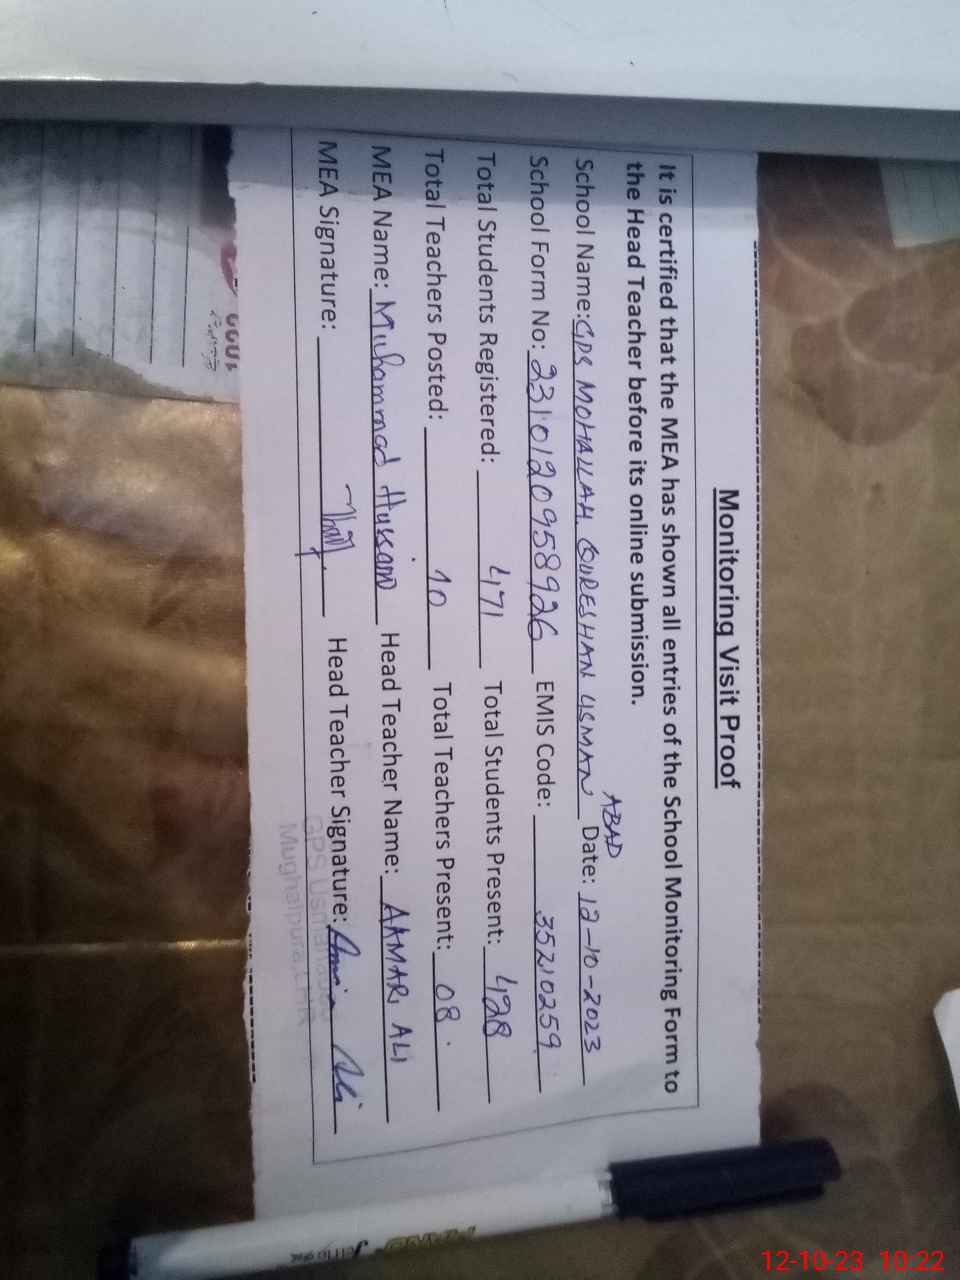 Monitoring Visit Proof
It is certified that the MEA has shown all entries of the School Monitoring Form to
the Head Teacher before its online submission.
ABAD
School Name: GPS MOHALLAH QURESHAN USMAN Date: 12-10-2023
School Form No: 2310120958926 EMIS Code: 35210259
Total Students Registered: 471 Total Students Present: 428
Total Teachers Posted: 10 Total Teachers Present: 08
MEA Name: Muhammad Hussain Head Teacher Name: AAMAR ALI
MEA Signature: Head Teacher Signature: Ali
GPS Usmanabad
Mughalpura, LHR
12-10-23 10:22